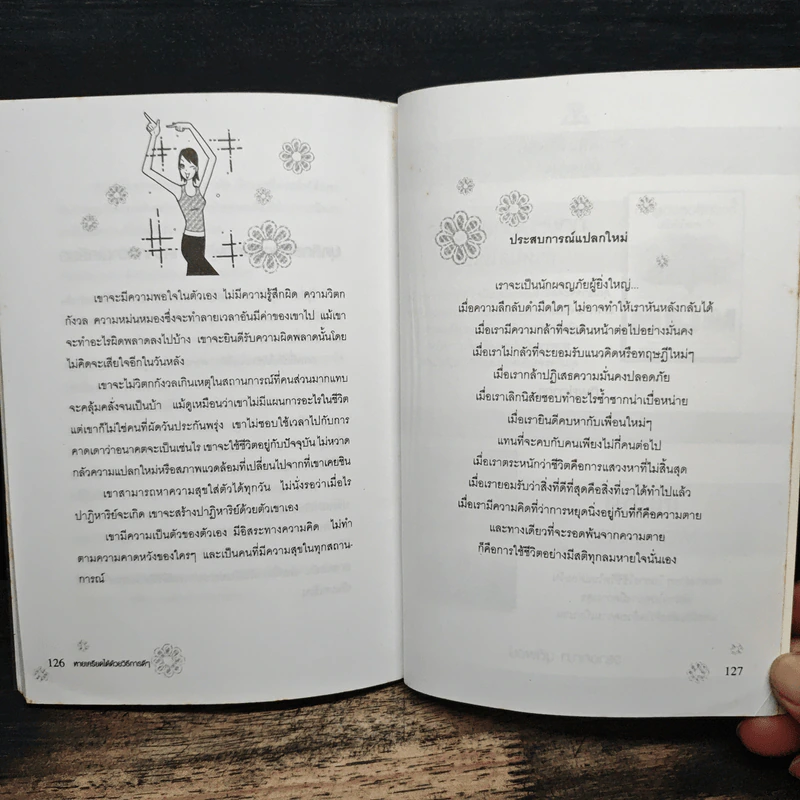 เขาจะมีความพอใจในตัวเอง ไม่มีความรู้สึกผิด ความวิตก
กังวล ความหม่นหมองซึ่งจะทำลายเวลาอันมีค่าของเขาไป แม้เขา
จะทำอะไรผิดพลาดลงไปบ้าง เขาจะยินดีรับความผิดพลาดนั้นโดย
ไม่คิดจะเสียใจอีกในวันหลัง
เขาจะไม่วิตกกังวลเกินเหตุในสถานการณ์ที่คนส่วนมากแทบ
จะคลุ้มคลั่งจนเป็นบ้า แม้ดูเหมือนว่าเขาไม่มีแผนการอะไรในชีวิต
แต่เขาก็ไม่ใช่คนที่ผัดวันประกันพรุ่ง เขาไม่ชอบใช้เวลาไปกับการ
คาดเดาว่าอนาคตจะเป็นเช่นไร เขาจะใช้ชีวิตอยู่กับปัจจุบัน ไม่หวาด
กลัวความแปลกใหม่หรือสภาพแวดล้อมที่เปลี่ยนไปจากที่เขาเคยชิน
เขาสามารถหาความสุขใส่ตัวได้ทุกวัน ไม่นั่งรอว่าเมื่อไร
ปาฏิหาริย์จะเกิด เขาจะสร้างปาฏิหาริย์ด้วยตัวเขาเอง
เขามีความเป็นตัวของตัวเอง มีอิสระทางความคิด ไม่ทำ
ตามความคาดหวังของใครๆ และเป็นคนที่มีความสุขในทุกสถาน-
การณ์
126 หายเครียดได้ด้วยวิธีการดีๆ
ประสบการณ์แปลกใหม่
เราจะเป็นนักผจญภัยผู้ยิ่งใหญ่...
เมื่อความลึกลับดำมืดใดๆ ไม่อาจทำให้เราหันหลังกลับได้
เมื่อเรามีความกล้าที่จะเดินหน้าต่อไปอย่างมั่นคง
เมื่อเราไม่กลัวที่จะยอมรับแนวคิดหรือทฤษฎีใหม่ๆ
เมื่อเรากล้าปฏิเสธความมั่นคงปลอดภัย
เมื่อเราเลิกนิสัยชอบทำอะไรซ้ำซากน่าเบื่อหน่าย
เมื่อเรายินดีคบหากับเพื่อนใหม่ๆ
แทนที่จะคบกับคนเพียงไม่กี่คนต่อไป
เมื่อเราตระหนักว่าชีวิตคือการแสวงหาที่ไม่สิ้นสุด
เมื่อเรายอมรับว่าสิ่งที่ดีที่สุดคือสิ่งที่เราได้ทำไปแล้ว
เมื่อเรามีความคิดที่ว่าการหยุดนิ่งอยู่กับที่ก็คือความตาย
และทางเดียวที่จะรอดพ้นจากความตาย
ก็คือการใช้ชีวิตอย่างมีสติทุกลมหายใจนั่นเอง
127